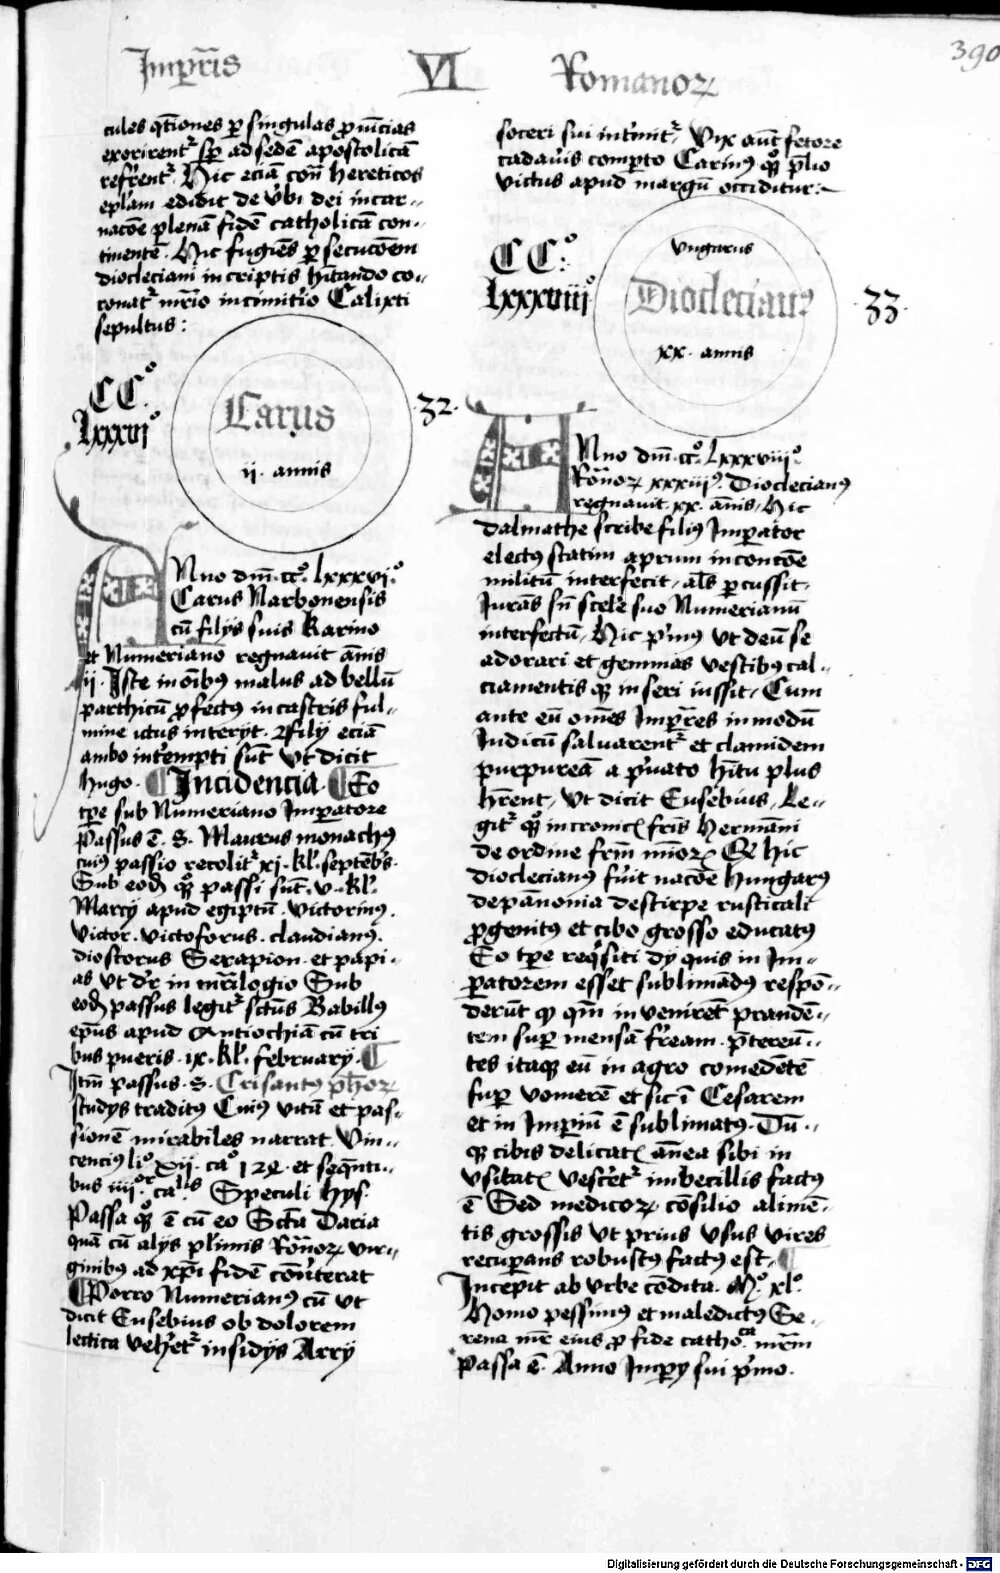 Imp̄r̄is VI Romanoꝝ
390
cules q̄tiones ꝑ singulas ꝓuīcias
exorirent᷑ sꝑ ad sedē apostolicā
refrēnt᷑. Hic eciā con̄ hereticos
ep̄lam edidit de v̄bi dei incar-
nacōe plenā fidē catholicā con-
tinentē. Hic fugiēs ꝑsecucōem
diocleciani in criptis h̄itando co-
ronat᷑ mr̄io in cimit'io Calixti
sepultus:
CC°
lxxxvi°
Carus
ii. annis
32.
Anno dm̄. cc°. lxxxvi°.
Carus Narbonensis
cū filijs suis Karino
et Numeriano regnauit ānis
ii. Iste in oībus malus ad bellū
parthicū ꝓfectus in castris ful-
mine ictus interijt. ⁊ filij eciā
ambo int'empti sūt vt dicit
hugo. ¶ Incidencia. ¶ Eo
tꝑe sub Numeriano Imꝑatore
Passus ē. S. Maurus monachꝰ
cuiꝰ passio recolit᷑ xi. kl̄. septēb's.
Sub eod̄ qꝫ passi sūt. v. kl̄.
Marcij apud egiptū. victorinꝰ.
victor. victoforus. claudianꝰ.
dioscorus Serapion. et papi-
as vt dr̄ in mr̄ilogio Sub
eod̄ passus legit᷑ sctūs Babillus
ep̄us apud Antiochiā cū tri
bus pueris. ix. kl̄. february. ¶
Itm̄ passus. S. Crisantꝰ ph̄oꝝ
studijs traditꝰ Cuiꝰ vitā et pas-
sionē mirabiles narrat Vin-
cenciꝰ li° xii. ca° 124. et seqn̄ti-
bus iiii°ʳ ca'lis Speculi hys.
Passa qꝫ ē cū eo Scta Daria
quā cū alijs pl'imis Rom̄oꝝ vir-
ginibus ad xp̄i fidē cōu'terat
¶ Porro Numerianꝰ cū vt
dicit Eusebius ob dolorem
lectica veh'et᷑ insidijs Arrij
soceri sui int'imit᷑. Vix aūt fetore
cadau'is comꝑto Carinꝰ qꝫ p̄lio
victus apud margū occiditur:
CC°:
lxxxviii°
vngarus
Dioclecianꝰ
xx. annis
33.
Anno dm̄. cc°. lxxxviii°.
Rom̄oꝝ xxxiiiꝰ. Dioclecianꝰ
regnauit. xx. ānis. Hic
dalmathe scribe filiꝰ Imꝑator
electꝰ statim aprum in concōe
militū interfecit, al's ꝑcussit.
Jurās sn̄ scel'e suo Numerianū
interfectū. Hic p'mꝰ vt deū se
adorari et gemmas vestibꝰ cal-
ciamentis qꝫ inseri iussit. Cum
ante eū om̄es Imꝑr̄es in modū
Judicū saluarent᷑ et clamidem
purpureā a p'uato h̄itu plus
h̄rent, vt dicit Eusebius. Le-
git᷑ qꝫ in cronicꝭ fr̄is hermāni
de ordine fr̄m mīoꝝ Qd hic
dioclecianꝰ fuit nacōe hungarꝰ
de pānonia de stirpe rusticali
ꝓgenitꝰ et cibo grosso educatꝰ
Eo tꝑe req'siti dij quis in Im-
ꝑatorem esset sublimādꝰ respō-
derūt ꝙ qm̄ inuenirēt prandē-
tem suꝑ mensā fr̄eam. p̄tereū-
tes itaqꝫ eū in agro comedētē
suꝑ vomerē et sic ī Cesarem
et in Imꝑiū ē sublimatꝰ. Dū-
qꝫ cibis delicatꝭ ānea sibi in
vsitatꝭ vesc'et᷑ imbecillis factꝰ
ē Sed medicoꝝ cōsilio alimē-
tis grossis vt prius vsus vires
recuꝑans robustꝰ factꝰ est. ¶
Incepit ab vrbe cōdita. M°. xl°.
Homo pessimꝰ et maledictꝰ Se-
rena vxr̄ eius ꝓ fide catho.ᶜᵃ mr̄m
passa ē. Anno Imꝑij sui p'mo.
Digitalisierung gefördert durch die Deutsche Forschungsgemeinschaft - DFG